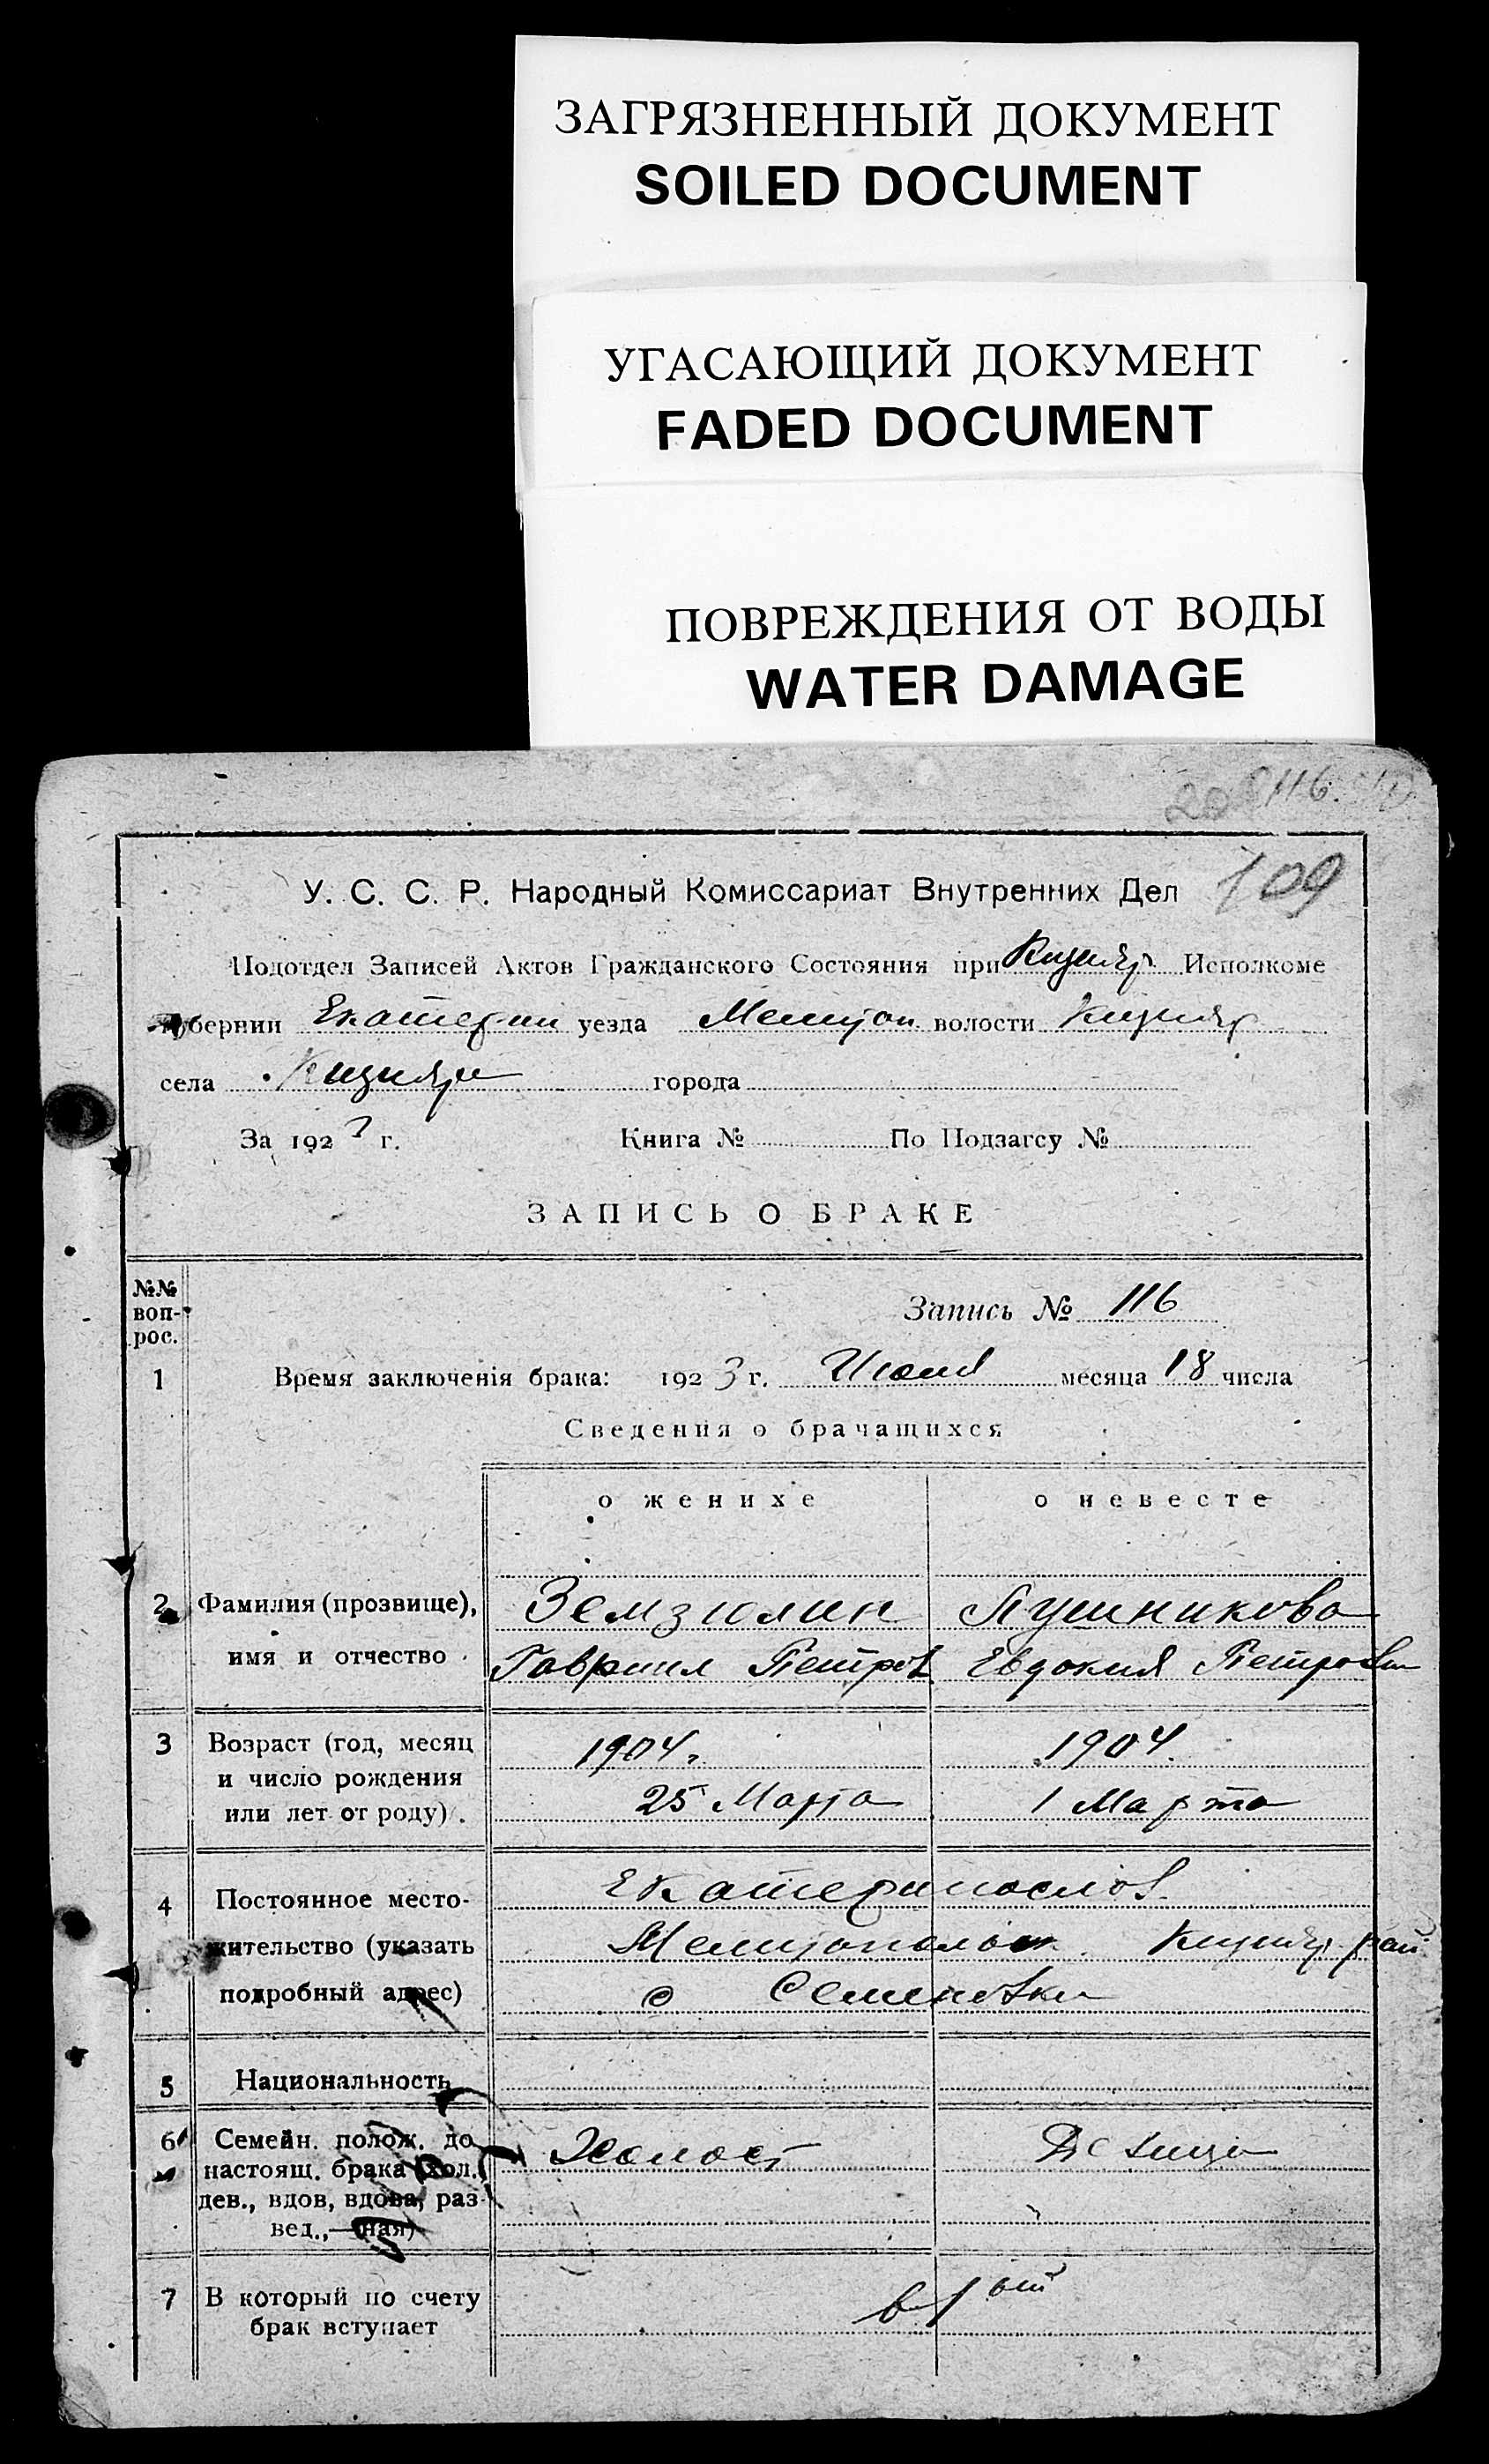 ЗАГРЯЗНЕННЫЙ ДОКУМЕНТ
SOILED DOCUMENT
УГАСАЮЩИЙ ДОКУМЕНТ
FADED DOCUMENT
ПОВРЕЖДЕНИЯ ОТ ВОДЫ
WATER DAMAGE
116.
109
У. С. С. Р. Народный Комиссариат Внутренних Дел
Подотдел Записей Актов Гражданского Состояния при Кизияр Исполкоме
губернии Екатерин уезда Мелитоп волости Кизияр
села Кизияр города
За 1923 г. Книга № По Подзагсу №
ЗАПИСЬ О БРАКЕ
№№ воп-рос.
Запись № 116
1 Время заключенія брака: 1923 г. Июля месяца 18 числа
Сведения о брачащихся
о женихе о невесте
2 Фамилия (прозвище), Земзюлин Лушникова
имя и отчество Гавриил Петров Евдокия Петровн
3 Возраст (год, месяц 1904. 1904.
и число рождения 25 Марта 1 Марта
или лет от роду).
4 Постоянное место- Екатеринослов.
жительство (указать Мелитополов Кизияр рай
подробный адрес) с Семеновки
5 Национальность
6 Семейн. полож. до Холост Девица
настоящ. брака (хол.
дев., вдов, вдова, раз-
вед.,—ная)
7 В который по счету в 1ый
брак вступает